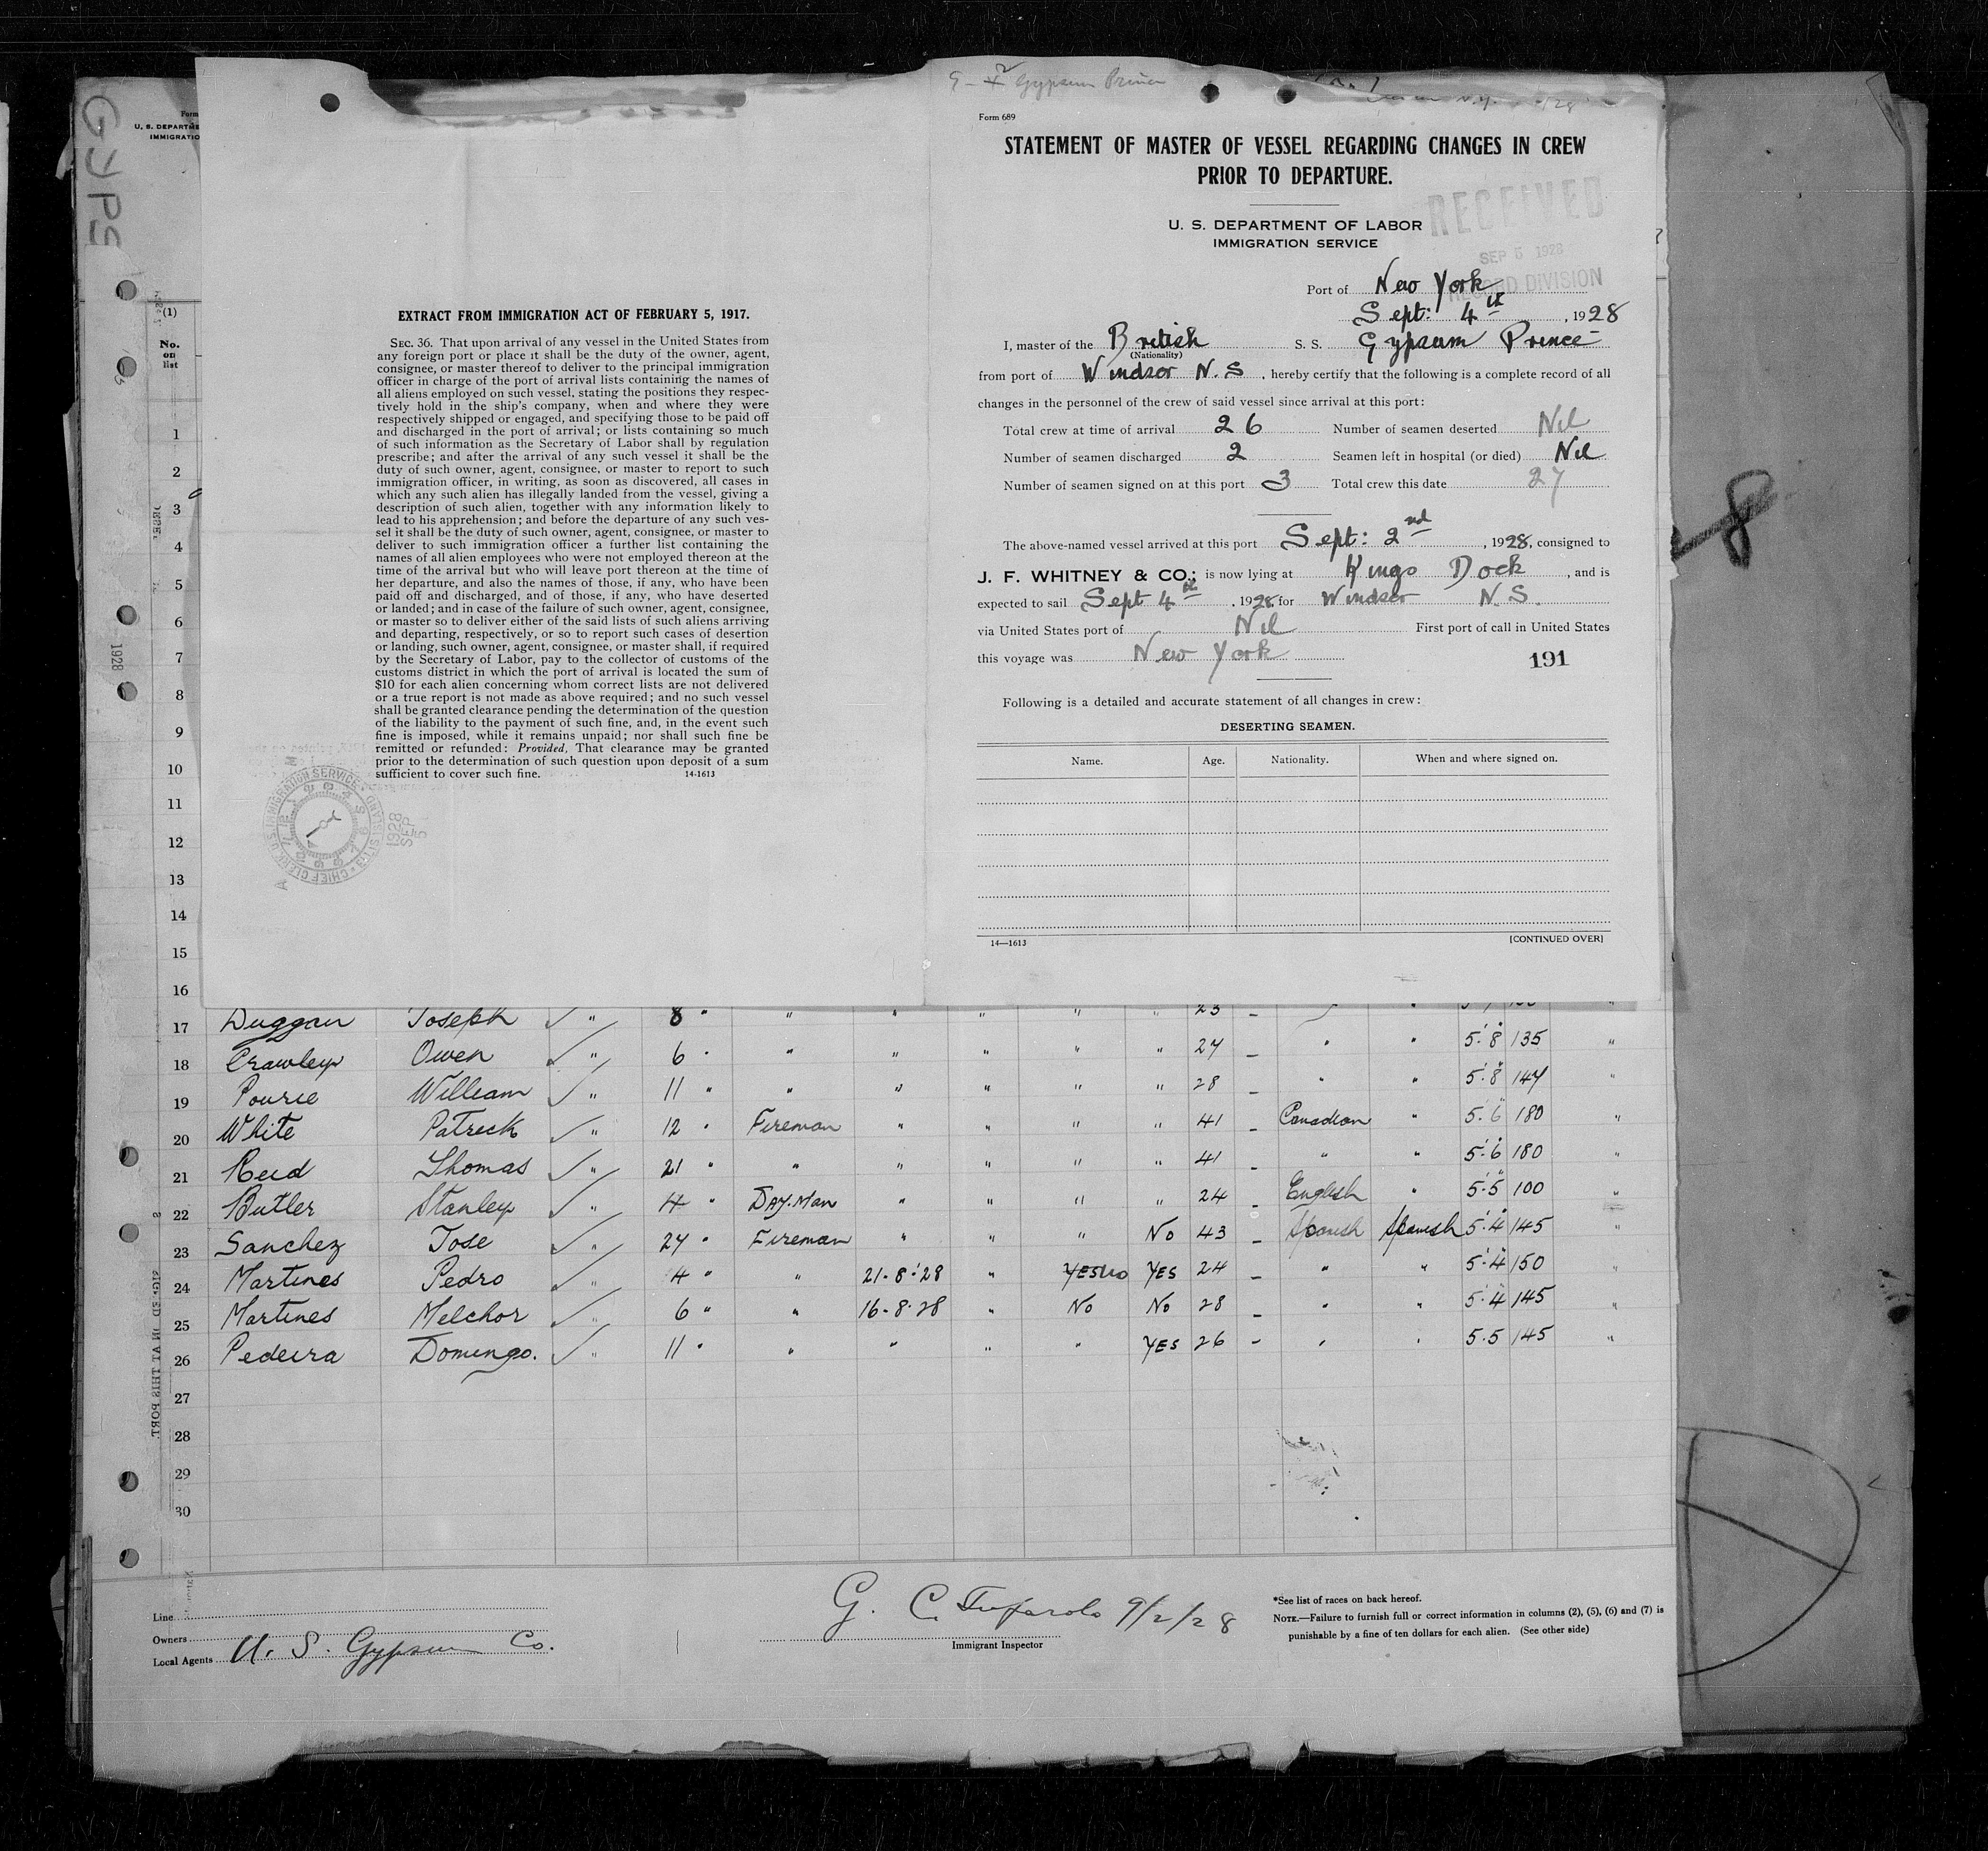 GYPS
Form
U. S. DEPARTME
IMMIGRATIO
(1)
No.
on
list
EXTRACT FROM IMMIGRATION ACT OF FEBRUARY 5, 1917.
SEC. 36. That upon arrival of any vessel in the United States from
any foreign port or place it shall be the duty of the owner, agent,
consignee, or master thereof to deliver to the principal immigration
officer in charge of the port of arrival lists containing the names of
all aliens employed on such vessel, stating the positions they respec-
tively hold in the ship's company, when and where they were
respectively shipped or engaged, and specifying those to be paid off
and discharged in the port of arrival; or lists containing so much
of such information as the Secretary of Labor shall by regulation
prescribe; and after the arrival of any such vessel it shall be the
duty of such owner, agent, consignee, or master to report to such
immigration officer, in writing, as soon as discovered, all cases in
which any such alien has illegally landed from the vessel, giving a
description of such alien, together with any information likely to
lead to his apprehension; and before the departure of any such ves-
sel it shall be the duty of such owner, agent, consignee, or master to
deliver to such immigration officer a further list containing the
names of all alien employees who were not employed thereon at the
time of the arrival but who will leave port thereon at the time of
her departure, and also the names of those, if any, who have been
paid off and discharged, and of those, if any, who have deserted
or landed; and in case of the failure of such owner, agent, consignee,
or master so to deliver either of the said lists of such aliens arriving
and departing, respectively, or so to report such cases of desertion
or landing, such owner, agent, consignee, or master shall, if required
by the Secretary of Labor, pay to the collector of customs of the
customs district in which the port of arrival is located the sum of
$10 for each alien concerning whom correct lists are not delivered
or a true report is not made as above required; and no such vessel
shall be granted clearance pending the determination of the question
of the liability to the payment of such fine, and, in the event such
fine is imposed, while it remains unpaid; nor shall such fine be
remitted or refunded: Provided, That clearance may be granted
prior to the determination of such question upon deposit of a sum
sufficient to cover such fine. 14-1613
CHIEF CLERK U.S. IMMIGRATION SERVICE
1928 SEP 5
Gypsum Prince
Form 689
STATEMENT OF MASTER OF VESSEL REGARDING CHANGES IN CREW
PRIOR TO DEPARTURE.
U. S. DEPARTMENT OF LABOR
IMMIGRATION SERVICE
RECEIVED
SEP 5 1928
RECORD DIVISION
Port of New York
Sept: 4th, 1928
I, master of the British S. S. Gypsum Prince
(Nationality)
from port of Windsor N. S, hereby certify that the following is a complete record of all
changes in the personnel of the crew of said vessel since arrival at this port:
Total crew at time of arrival 26 Number of seamen deserted Nil
Number of seamen discharged 2 Seamen left in hospital (or died) Nil
Number of seamen signed on at this port 3 Total crew this date 27
The above-named vessel arrived at this port Sept: 2nd, 1928, consigned to
J. F. WHITNEY & CO.; is now lying at Kings Dock, and is
expected to sail Sept 4th, 1928 for Windsor N. S.
via United States port of Nil First port of call in United States
this voyage was New York
191
Following is a detailed and accurate statement of all changes in crew:
DESERTING SEAMEN.
Name. Age. Nationality. When and where signed on.
14—1613 [CONTINUED OVER]
8
1928
1
2
3
4
5
6
7
8
9
10
11
12
13
14
15
16
17 Duggan Joseph " 8 " " " " " " 23 –
18 Crawley Owen " 6 " " " " " " 27 – " " 5'.8" 135 "
19 Pourie William " 11 " " " " " " 28 – " " 5'.8" 147 "
20 White Patrick " 12 " Fireman " " " " 41 – Canadian " 5'.6" 180 "
21 Reid Thomas " 21 " " " " " " 41 – " " 5'.6" 180 "
22 Butler Stanley " 4 " DAY.Man " " " " 24 – English " 5'.5" 100 "
23 Sanchez Jose " 24 " Fireman " " " No 43 – Spanish Spanish 5'.4" 145 "
24 Martines Pedro " 4 " " 21-8-'28 " YES No YES 24 – " " 5'.4" 150 "
25 Martines Melchor " 6 " " 16-8-28 " No No 28 – " " 5'.4" 145 "
26 Pedeira Domingo. " 11 " " " " " YES 26 – " " 5.5 145 "
27
28
29
30
SIGNED IN AT THIS PORT.
Line
Owners
Local Agents U. S. Gypsum Co.
G. C. 9/2/28
Immigrant Inspector
*See list of races on back hereof.
NOTE.—Failure to furnish full or correct information in columns (2), (5), (6) and (7) is
punishable by a fine of ten dollars for each alien. (See other side)